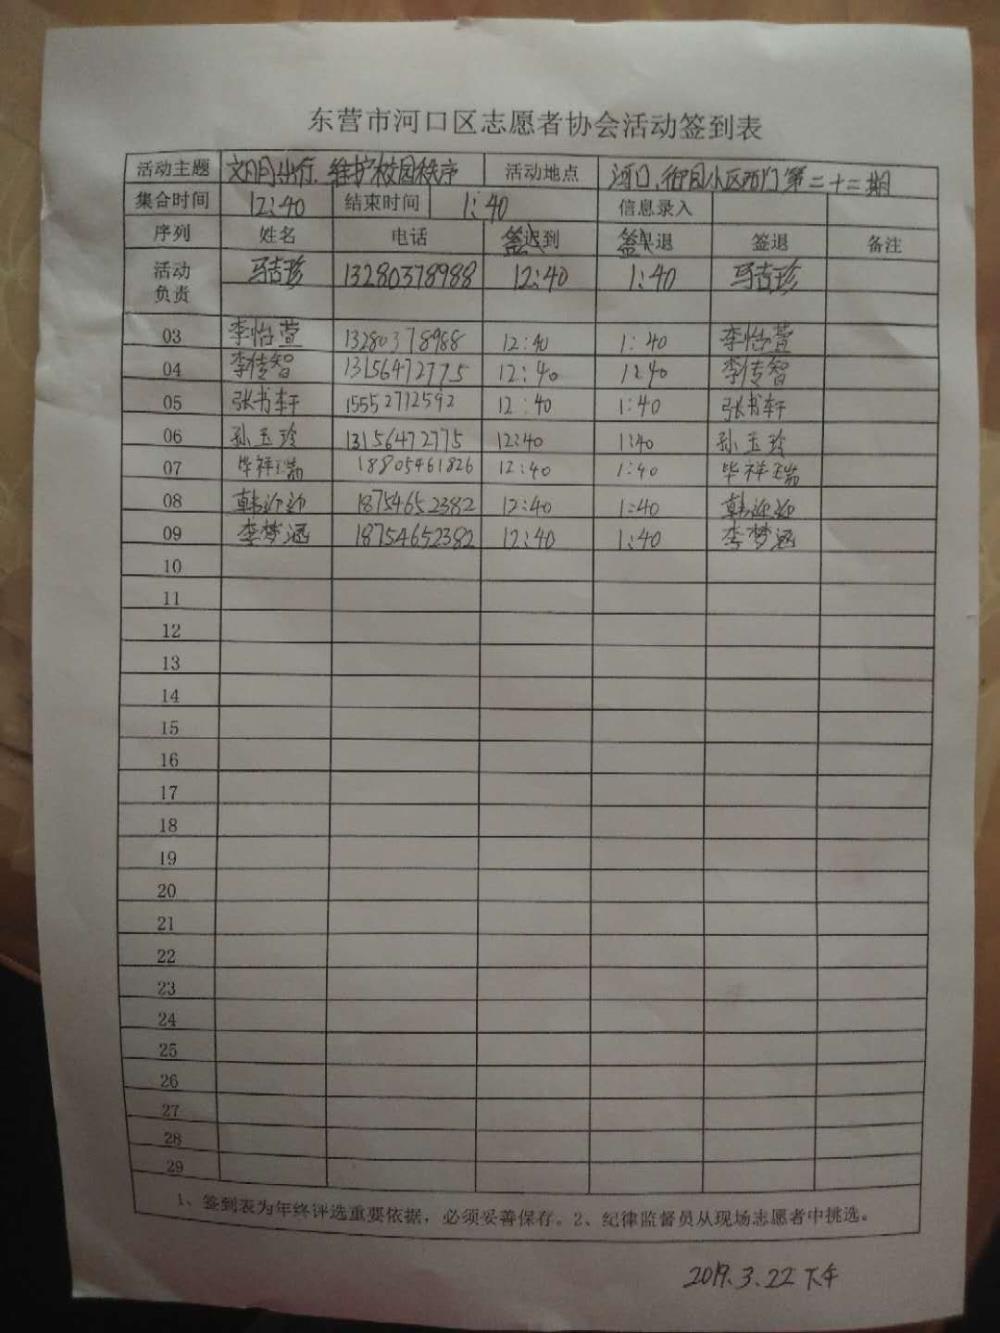 东营市河口区志愿者协会活动签到表
活动主题 文明出行、维护校园秩序 活动地点 河口、御园小区西门第二十二期
集合时间 12:40 结束时间 1:40 信息录入
序列 姓名 电话 签到 签退 签退 备注
活动负责 马吉珍 13280378988 12:40 1:40 马吉珍
03 李怡萱 13280378988 12:40 1:40 李怡萱
04 李传智 13156472775 12:40 1:40 李传智
05 张书轩 15552712592 12:40 1:40 张书轩
06 孙玉玲 13156472775 12:40 1:40 孙玉玲
07 毕祥瑞 18805461826 12:40 1:40 毕祥瑞
08 韩迎迎 18754652382 12:40 1:40 韩迎迎
09 李梦涵 18754652382 12:40 1:40 李梦涵
10
11
12
13
14
15
16
17
18
19
20
21
22
23
24
25
26
27
28
29
1、签到表为年终评选重要依据，必须妥善保存。2、纪律监督员从现场志愿者中挑选。
2019.3.22下午